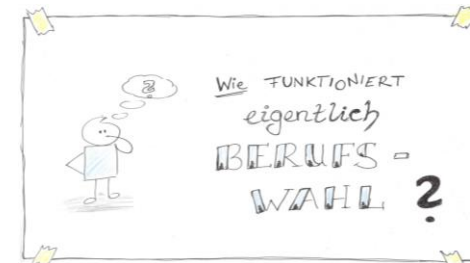 ?
Wie FUNKTIONIERT
eigentlich
BERUFS-
WAHL ?